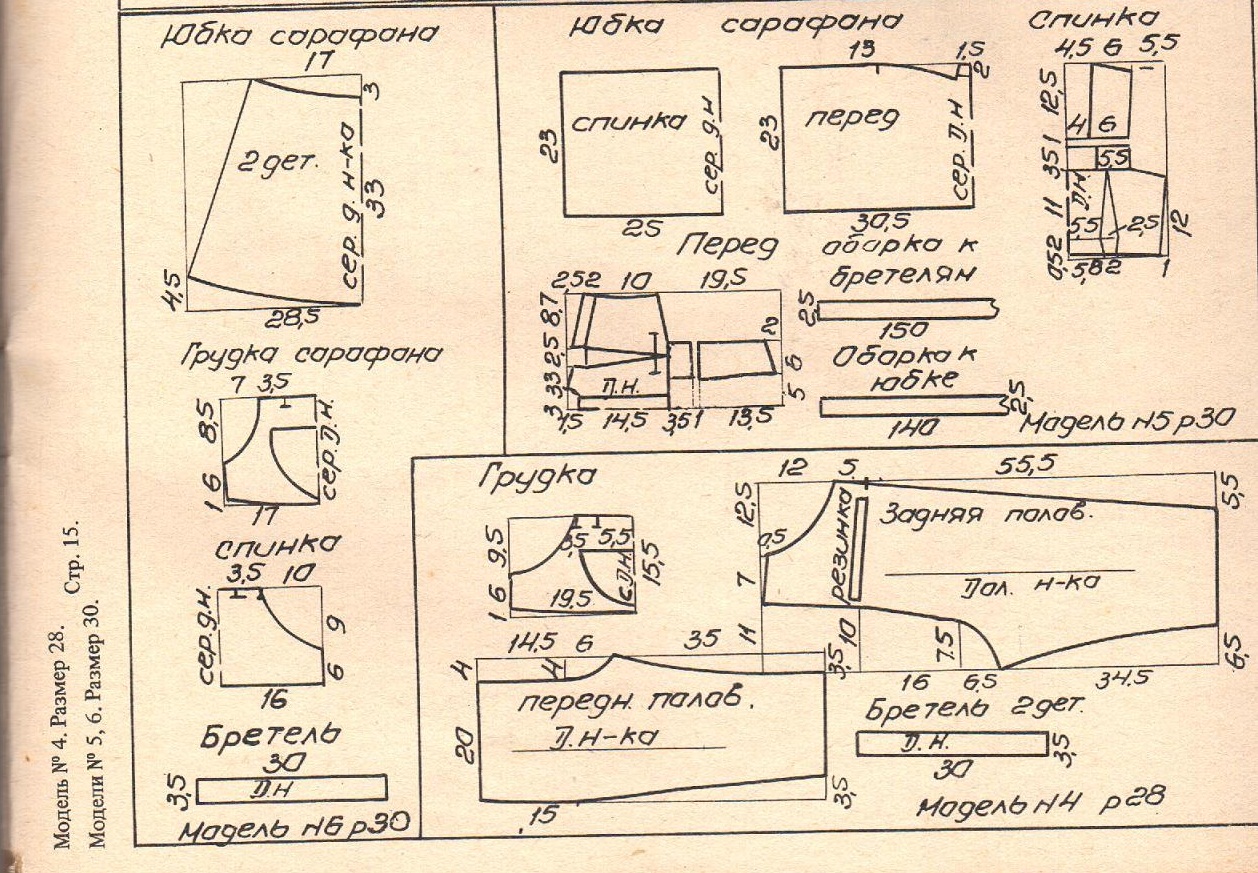 Юбка сарафана
17
3
2 дет.
сер. д. н-ка
33
4,5
28,5
Грудка сарафана
7 3,5
8,5
сер. Д. Н.
1 6
17
спинка
3,5 10
сер. д. н.
9
6
16
Бретель
30
3,5
Д Н
Мадель N6 р30
Юбка сарафана
Спинка
23
спинка
сер. д. н
25
13
1,5
2
23
перед
сер. Д. Н
30,5
4,5 6 5,5
12,5
4 6
1
3,5
5,5
Д. Н.
11
5,5
2,5
12
0,5 2
1
Перед
2,5 2 10 19,5
8,7
2,5
3 3
3
Д. Н.
1,5 14,5 3,5 1 13,5
6
5
оборка к
бретелям
2,5
150
Оборка к
юбке
2,5
140
Мадель N5 р30
Грудка
9,5
3,5 5,5
с. Д. Н.
15,5
1 6
19,5
12 5 55,5
12,5
5,5
0,5
7
резинка
Задняя палав.
Дол. н-ка
11
10
7.5
3,5
16 6,5 34.5
6,5
14.5 6 35
4
4
передн. палав.
Д. н-ка
20
15
3,5
Бретель 2 дет.
Д. Н.
3,5
30
Мадель N4 р28
Модель № 4. Размер 28.
Модели № 5, 6. Размер 30. Стр. 15.